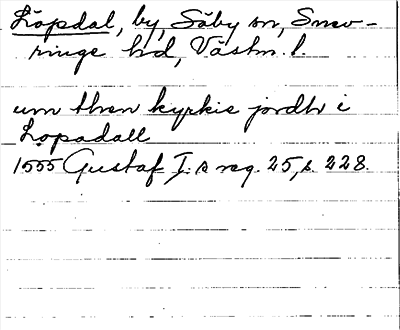 Löpdal, by, Säby sn, Snev-
ringe hd, Västm. l.
um then kyrkie jordh i
Lopadall
1555 Gustaf I:s reg. 25, s. 228.